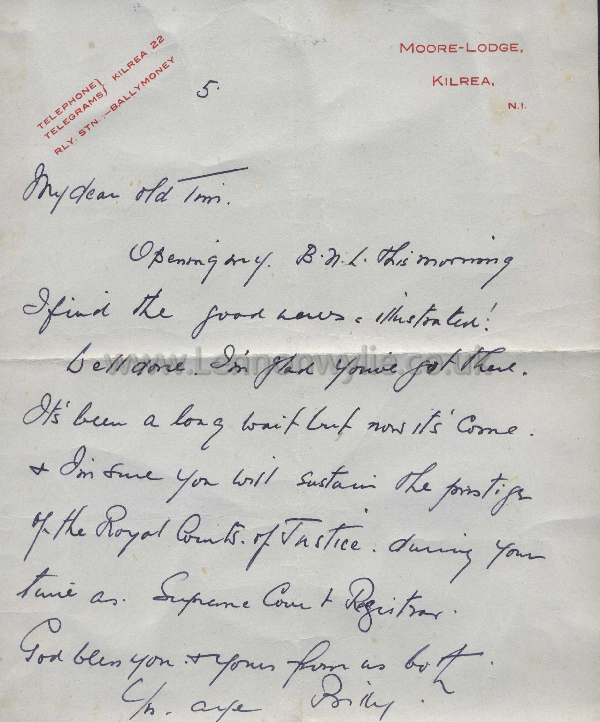 MOORE-LODGE,
KILREA,
N.I.
TELEPHONE } KILREA 22
TELEGRAMS
RLY. STN. - BALLYMONEY
5.
My dear old Tim.
Opening my B.N.L. this morning
I find the good news - illustrated!
Well done. I'm glad you've got there.
www.Lennonwylie.co.uk
It's been a long wait but now it's come.
& I'm sure you will sustain the prestige
of the Royal Courts. of Justice. during your
time as. Supreme Court Registrar.
God bless you. & yours from us both.
aye Billy.